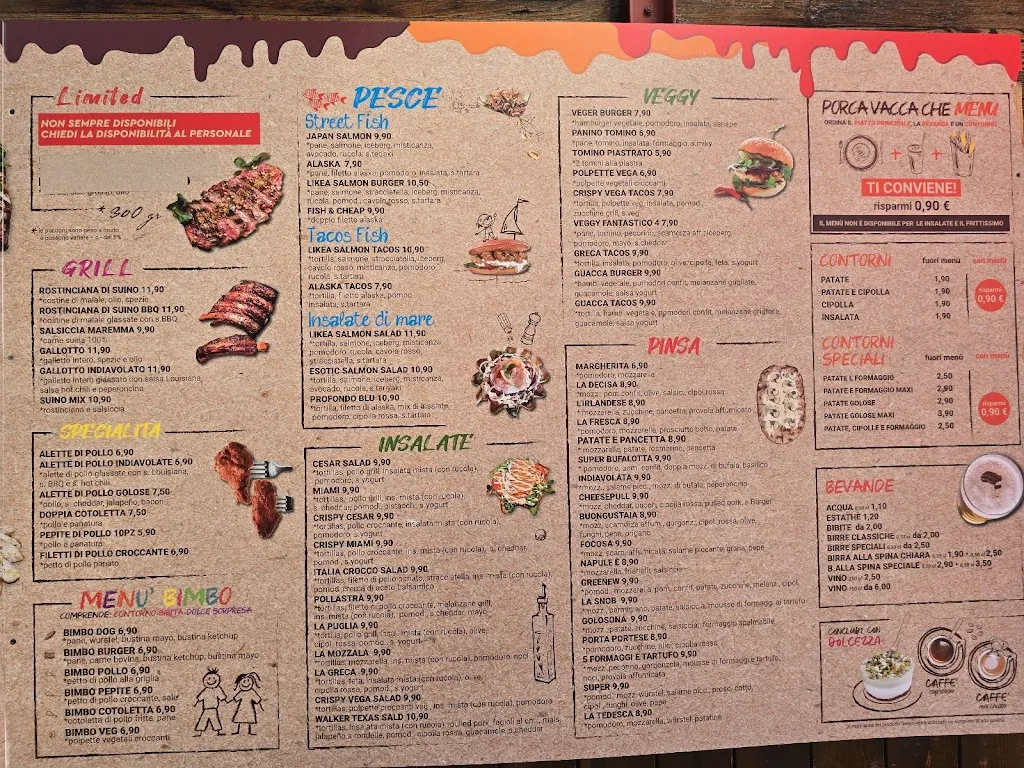 Limited
NON SEMPRE DISPONIBILI
CHIEDI LA DISPONIBILITÀ AL PERSONALE
* 300 gr
GRILL
ROSTINCIANA DI SUINO 11,90
*costine di maiale, olio, spezie
ROSTINCIANA DI SUINO BBQ 11,90
*costine di maiale glassate con s.BBQ
SALSICCIA MAREMMA 9,90
*carne suina 100%
GALLOTTO 11,90
*galletto intero, spezie e olio
GALLOTTO INDIAVOLATO 11,90
*galletto intero glassato con salsa Louisiana,
salsa hot chili e peperoncino
SUINO MIX 10,90
*rostinciana e salsiccia
SPECIALITÀ
ALETTE DI POLLO 6,90
ALETTE DI POLLO INDIAVOLATE 6,90
*alette di pollo glassate con s. Louisiana,
s. BBQ e s. hot chili
ALETTE DI POLLO GOLOSE 7,50
*pollo, s. cheddar, jalapeño, bacon
DOPPIA COTOLETTA 7,50
*pollo e panatura
PEPITE DI POLLO 10PZ 5,90
*pollo e panatura
FILETTI DI POLLO CROCCANTE 6,90
*petto di pollo panato
MENU' BIMBO
COMPRENDE: CONTORNO-BIBITA-DOLCE SORPRESA
BIMBO DOG 6,90
*pane, wurstel, bustina mayo, bustina ketchup
BIMBO BURGER 6,90
*pane, carne bovina, bustina ketchup, bustina mayo
BIMBO POLLO 6,90
*petto di pollo alla griglia
BIMBO PEPITE 6,90
*petto di pollo croccante, sale
BIMBO COTOLETTA 6,90
*cotoletta di pollo fritta, pane
BIMBO VEG 6,90
*polpette vegetali croccanti
PESCE
Street Fish
JAPAN SALMON 9,90
*pane, salmone, iceberg, misticanza,
avocado, rucola, s.teriaki
ALASKA 7,90
*pane, filetto alaska, pomodoro, insalata, s.tartara
LIKEA SALMON BURGER 10,50
*pane, salmone, stracciatella, iceberg, misticanza,
rucola, pomod., cavolo rosso, s.tartara
FISH & CHEAP 9,90
*doppio filetto alaska
Tacos Fish
LIKEA SALMON TACOS 10,90
*tortilla, salmone, stracciatella, iceberg,
cavolo rosso, misticanza, pomodoro
rucola, s.tartara
ALASKA TACOS 7,90
*tortilla, filetto alaska, pomod.
insalata, s.tartara
Insalate di mare
LIKEA SALMON SALAD 11,90
*tortilla, salmone, iceberg, misticanza,
pomodoro, rucola, cavolo rosso,
stracciatella, s.tartara
ESOTIC SALMON SALAD 10,90
*tortilla, salmone, iceberg, misticanza,
avocado, rucola, s. teriyaki
PROFONDO BLU 10,90
*tortilla, filetto di alaska, mix di insalate,
pomodoro, cipolla rossa, s.tartara
INSALATE
CESAR SALAD 9,90
*tortillas, pollo grill, insalata mista (con rucola),
pomodoro, s.yogurt
MIAMI 9,90
*tortillas, pollo grill, ins. mista (con rucola),
s. cheddar, pomod., pistacchi, s.yogurt
CRISPY CESAR 9,90
*tortillas, pollo croccante, insalata mista (con rucola),
pomodoro, s.yogurt
CRISPY MIAMI 9,90
*tortillas, pollo croccante, ins. mista (con rucola), s. cheddar,
pomod., s.yogurt
ITALIA CROCCO SALAD 9,90
*tortillas, filetto di pollo panato, stracciatella, ins. mista (con rucola),
pomod., crema di aceto balsamico
POLLASTRA 9,90
*tortillas, filetto di pollo croccante, melanzane grill,
ins. mista (con rucola), pomod., s.cheddar, mayo
LA PUGLIA 9,90
*tortilla, pollo grill, insal. mista (con rucola), olive,
cipol. rossa, pomod., s. yogurt
LA MOZZALA 9,90
*tortillas, mozzarella, ins. mista (con rucola), pomodoro, noci
LA GRECA 9,90
*tortillas, feta, insalata mista (con rucola), olive,
cipolla rossa, pomod., s.yogurt
CRISPY VEGA SALAD 9,90
*tortillas, polpette croccanti veg., ins. mista (con rucola), pomodoro
WALKER TEXAS SALD 10,90
*tortillas, insalata mista (con rucola), pulled pork, fagioli al chili, mais,
jalapeño a rondelle, pomod., cipolla rossa, guacamole, s.cheddar
VEGGY
VEGER BURGER 7,90
*hamburger vegetale, pomodoro, insalata, senape
PANINO TOMINO 6,90
*pane, tomino, insalata, formaggio, s.miky
TOMINO PIASTRATO 5,90
*2 tomini alla piastra
POLPETTE VEGA 6,90
*polpette vegetali croccanti
CRISPY VEGA TACOS 7,90
*tortilla, polpette veg, insalata, pomod.,
zucchine grill, s.veg
VEGGY FANTASTICO 4 7,90
*pane, tomino, pecorino, scamorza aff., iceberg,
pomodoro, mayo, s.cheddar
GRECA TACOS 9,90
*tortilla, insalata, pomodoro, olive, cipolla, feta, s.yogurt
GUACCA BURGER 9,90
*hamb. vegetale, pomodori confit, melanzane grigliate,
guacamole, salsa yogurt
GUACCA TACOS 9,90
*tortilla, hamb. vegetale, pomodori confit, melanzane grigliate,
guacamole, salsa yogurt
PINSA
MARGHERITA 6,90
*pomodoro, mozzarella
LA DECISA 8,90
*mozz., pom.confit, olive, salsicc., cipol.rossa
L'IRLANDESE 8,90
*mozzarella, zucchine, pancetta, provola affumicata
LA FRESCA 8,90
*pomodoro, mozzarella, prosciutto cotto, patate
PATATE E PANCETTA 8,90
*mozzarella, patate, rosmarino, pancetta
SUPER BUFALOTTA 9,90
*pomodoro, pom. confit, doppia mozz. di bufala, basilico
INDIAVOLATA 9,90
*mozz., salame picc., mozz. di bufala, peperoncino
CHEESEPULL 9,90
*mozz., cheddar, bacon, cipolla rossa, pulled pork, s.Burger
BUONGUSTAIA 8,90
*mozz., scamorza affum., gorgonz., cipol. rossa, olive,
funghi, pepe, origano
FOCOSA 9,90
*mozz., scam. affumicata, salame piccante, grana, pepe
NAPULE È 8,90
*mozzarella, friarielli, salsiccia
GREENEW 9,90
*pomod., mozzarella, pom. confit, patate, zucchine, melanz., cipol.
LA SNOB 9,90
*mozz., parmigiano, patate, salsicc., al mousse di formaggi al tartufo
GOLOSONA 9,90
*mozz., patate, zucchine, salsiccia, formaggio spalmabile
PORTA PORTESE 8,90
*pomodoro, zucchine, olive, cipolla rossa
5 FORMAGGI E TARTUFO 9,90
*mozz., pecorino, gorgonzola, mousse di formaggi e tartufo,
noci, provola affumicata
SUPER 9,90
*pomod., mozz., würstel, salame picc., prosc. cotto,
cipol., funghi, olive, pepe
LA TEDESCA 8,90
*pomodoro, mozzarella, würstel, patatine
PORCA VACCA CHE MENU
ORDINA IL PIATTO PRINCIPALE, LA BEVANDA E UN CONTORNO
TI CONVIENE!
risparmi 0,90 €
IL MENÙ NON È DISPONIBILE PER LE INSALATE E IL FRITTISSIMO
CONTORNI fuori menù con menù
PATATE 1,90
PATATE E CIPOLLA 1,90
CIPOLLA 1,90
INSALATA 1,90
risparmi
0,90 €
CONTORNI
SPECIALI fuori menù con menù
PATATE E FORMAGGIO 2,50
PATATE E FORMAGGIO MAXI 2,90
PATATE GOLOSE 2,90
PATATE GOLOSE MAXI 3,90
PATATE, CIPOLLE E FORMAGGIO 2,50
risparmi
0,90 €
BEVANDE
ACQUA 1,10
ESTATHÈ 1,20
BIBITE da 2,00
BIRRE CLASSICHE da 2,00
BIRRE SPECIALI da 2,50
BIRRA ALLA SPINA CHIARA 1,90 • 2,50
B.ALLA SPINA SPECIALE 2,90 • 3,50
VINO 2,50
VINO da 6,00
CONCLUDI CON
DOLCEZZA
CAFFE'
CAFFE'
MACCHIATO